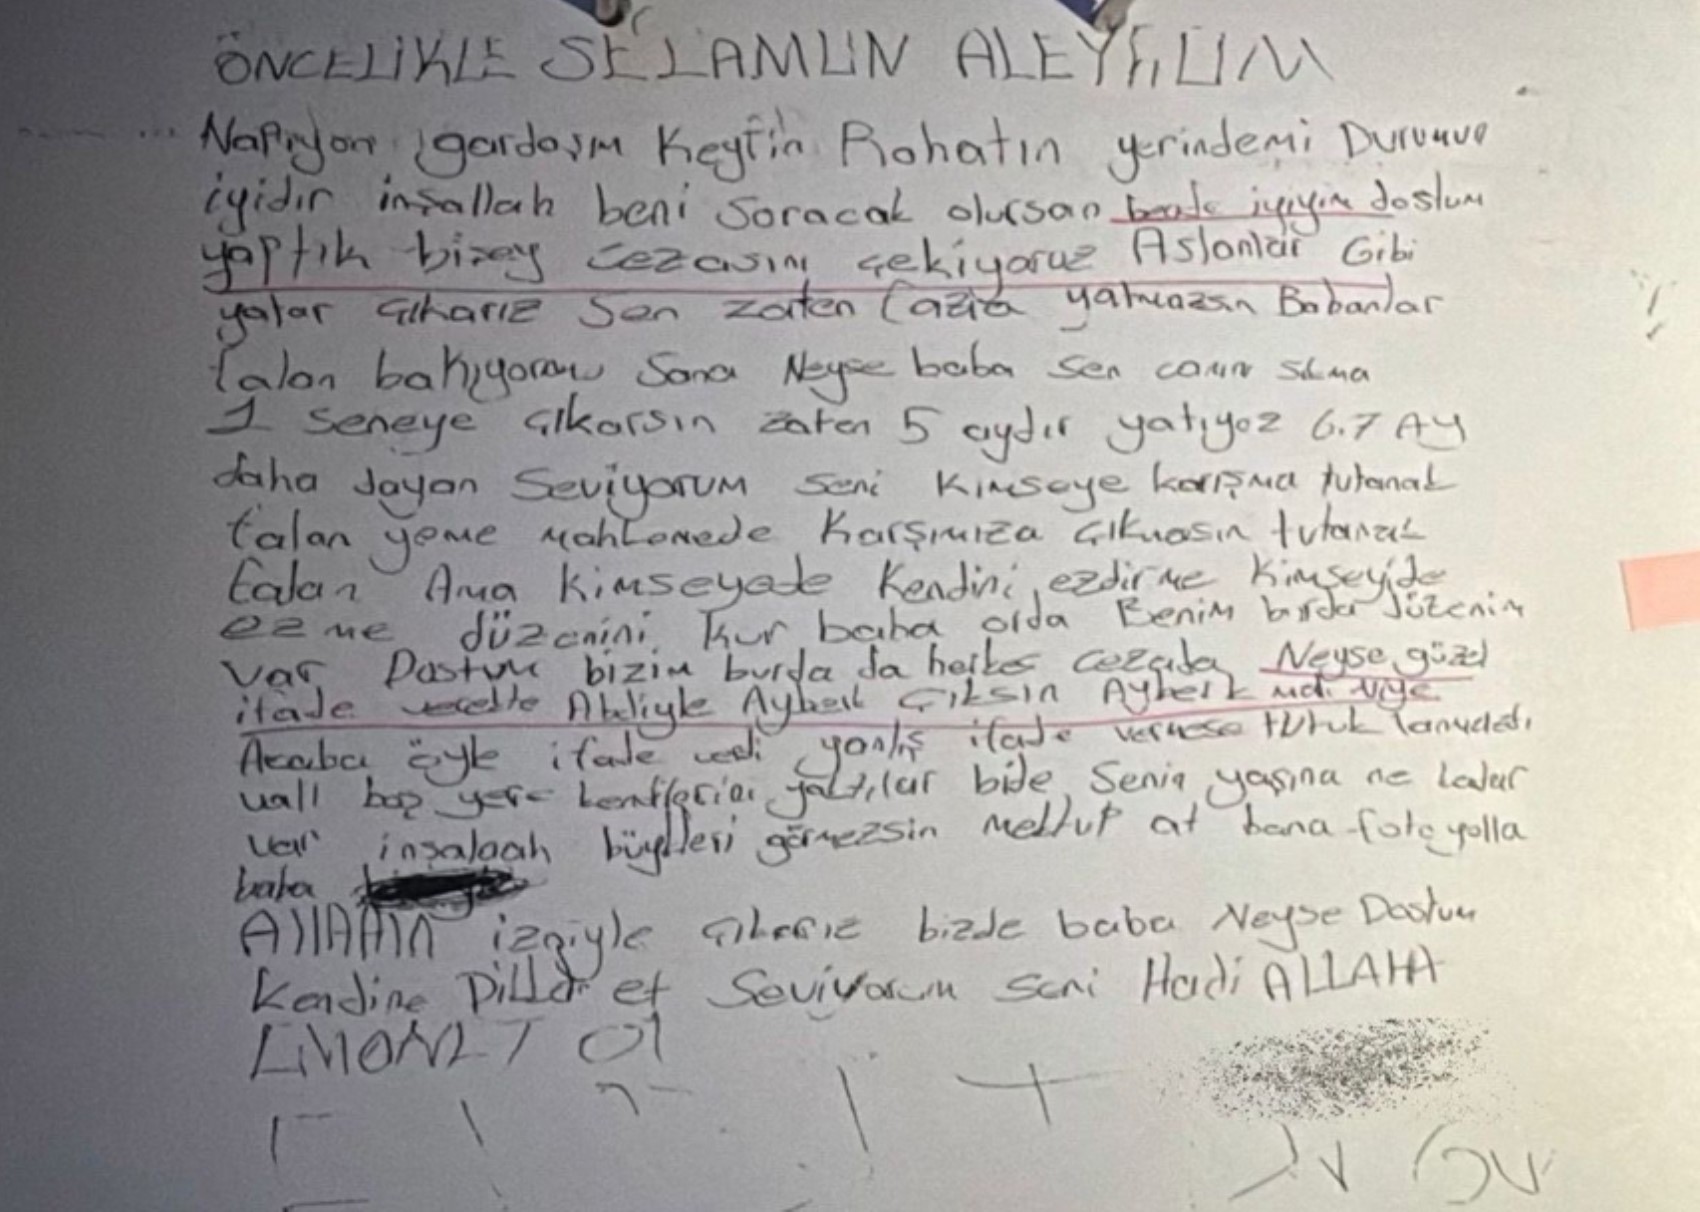 ÖNCELİKLE SELAMUN ALEYKUM
Napıyon gardaşım Keyfin Rohatın yerindemi Durumun
iyidir inşallah beni soracak olursan bende iyiyim dostum
yaptık bizey cezasını çekiyoruz Aslanlar Gibi
yatar çıkarız Sen zaten fazla yatmazsın Babanlar
falan bakıyorum Sana Neyse baba sen canın sıkma
1 seneye çıkarsın zaten 5 aydır yatıyoz 6.7 Ay
daha dayan Seviyorum seni Kimseye karışma tutanak
falan yeme mahkemede Karşımıza çıkmasın tutanak
falan Ama kimseyede Kendini ezdirme kimseyide
ezme düzenini kur baba orda Benim burda düzenim
var Dostum bizim burda da herkes cezada Neyse güzel
ifade verelim Ayberk Çıksın Ayberk niye
Acaba öyle ifade verdi yanlış ifade vermese
boş yere bide Senin yaşına ne kadar
var inşalaah görmezsin mektup at bana foto yolla
baba
Allahın izniyle çıkarız bizde baba Neyse Dostum
Kendine Dikkat et Seviyorum seni Hadi ALLAHA
EMANET Ol